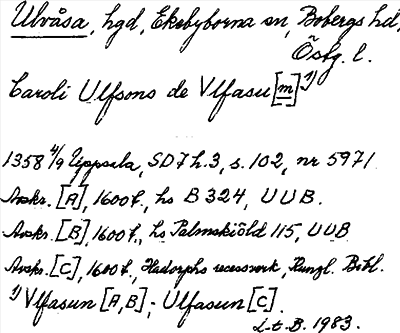 Ulvåsa, hgd, Ekebyborna sn, Bobergs hd,
Östg. l.
Caroli Ulfsons de Vlfasu[m]¹⁾
1358 4/9 Uppsala, SD 7 h.3, s. 102, nr 5971
Avskr. [A], 1600 t., hs B 324, UUB.
Avskr. [B], 1600 t., hs Palmskiöld 115, UUB
Avskr. [C], 1600 t., Hadorphs recessverk, Kungl. Bibl.
¹⁾ Vlfasun [A, B]; Ulfasun [C].
L.t.B. 1983.